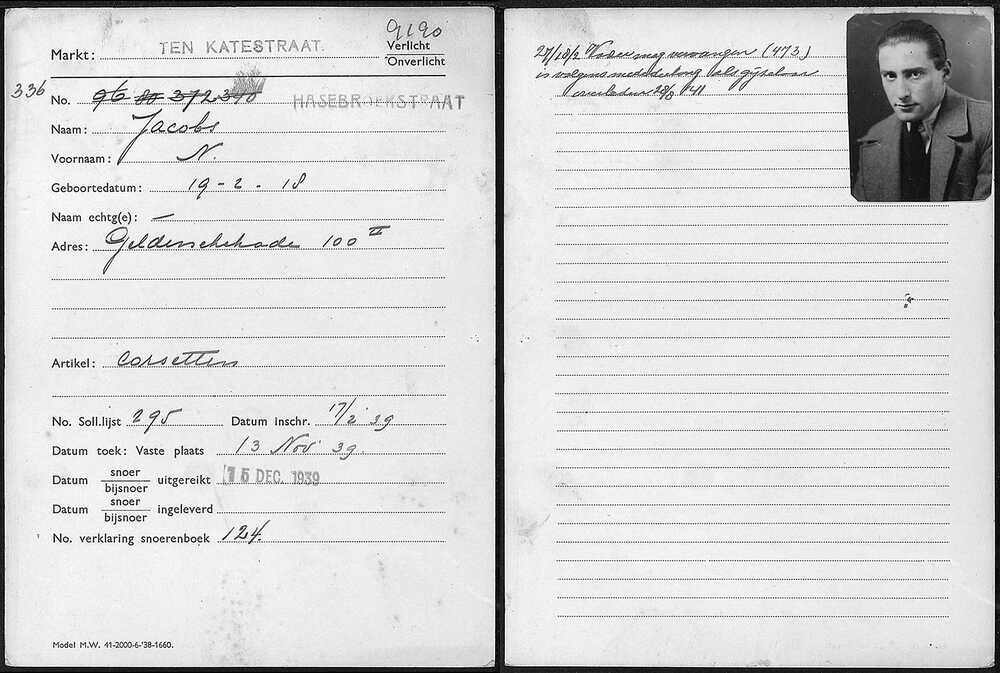 9190
Markt: TEN KATESTRAAT. Verlicht
Onverlicht
336 No. 96 372 370 HASEBROEKSTRAAT
Naam: Jacobs
Voornaam: N.
Geboortedatum: 19-2-18
Naam echtg(e): —
Adres: Gelderschekade 100 II
Artikel: Corsetten
No. Soll.lijst 295 Datum Inschr. 17/2 39
Datum toek: Vaste plaats 13 Nov 39.
Datum snoer uitgereikt 15 DEC. 1939
bijsnoer
Datum snoer ingeleverd
bijsnoer
No. verklaring snoerenboek 124.
Model M.W. 41-2000-6-'38-1660.
Vader mag vervangen (473)
is volgens mededeeling als gijzelaar
overleden 41